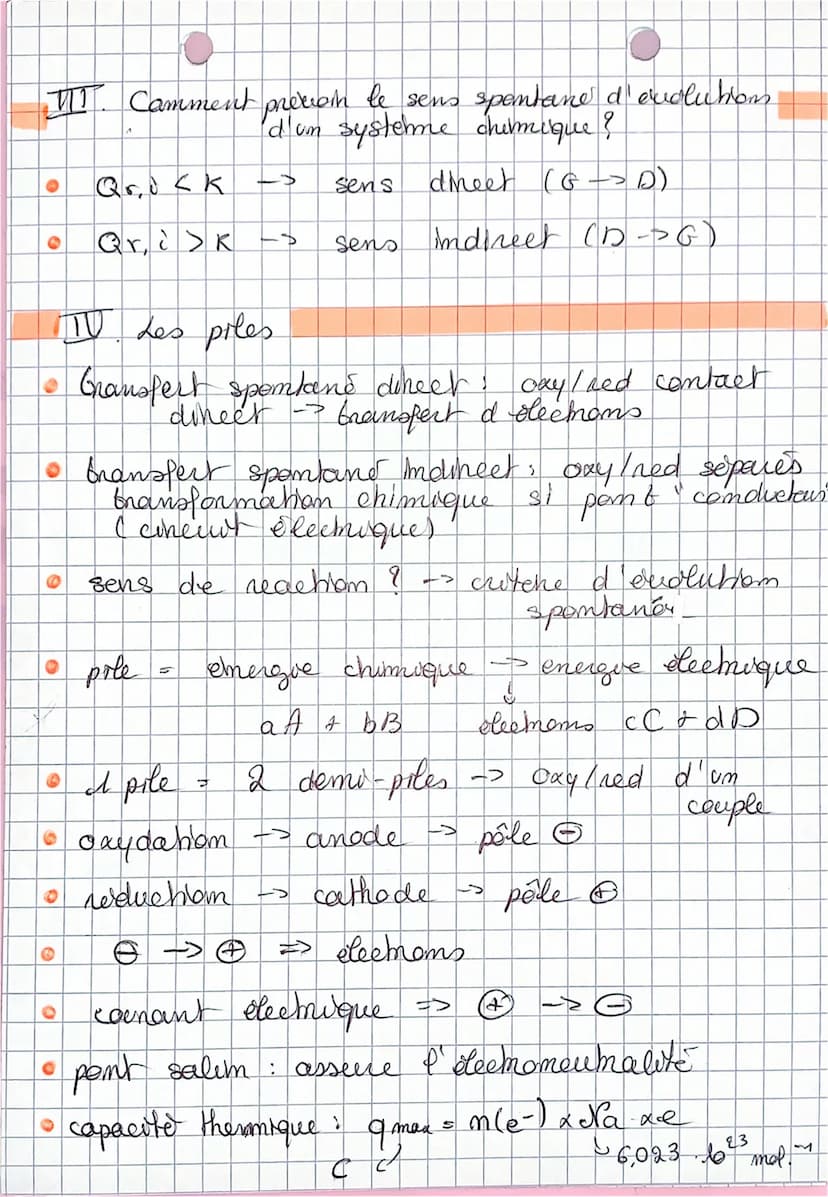 III. Comment prévoir le sens spontané d'évolution
d'un système chimique ?
Qr,i < K --> sens direct (G --> D)
Qr,i > K --> sens indirect (D --> G)
IV. Les piles
Transfert spontané direct : oxy/red contact
direct --> transfert d'électrons
transfert spontané indirect : oxy/red séparés
transformation chimique si pont "conducteur
(circuit électrique)
sens de reaction ? --> critère d'évolution
spontanée
pile = energie chimique --> energie électrique
aA + bB électrons cC + dD
1 pile = 2 demi-piles --> oxy/red d'un
couple
oxydation --> anode --> pôle ⊖
réduction --> cathode --> pôle ⊕
⊖ --> ⊕ => électrons
courant électrique => ⊕ --> ⊖
pont salin : assure l'électroneutralité
capacité thermique : qmax = n(e-) x Na x e
C 6,023 . 10^23 mol.^-1